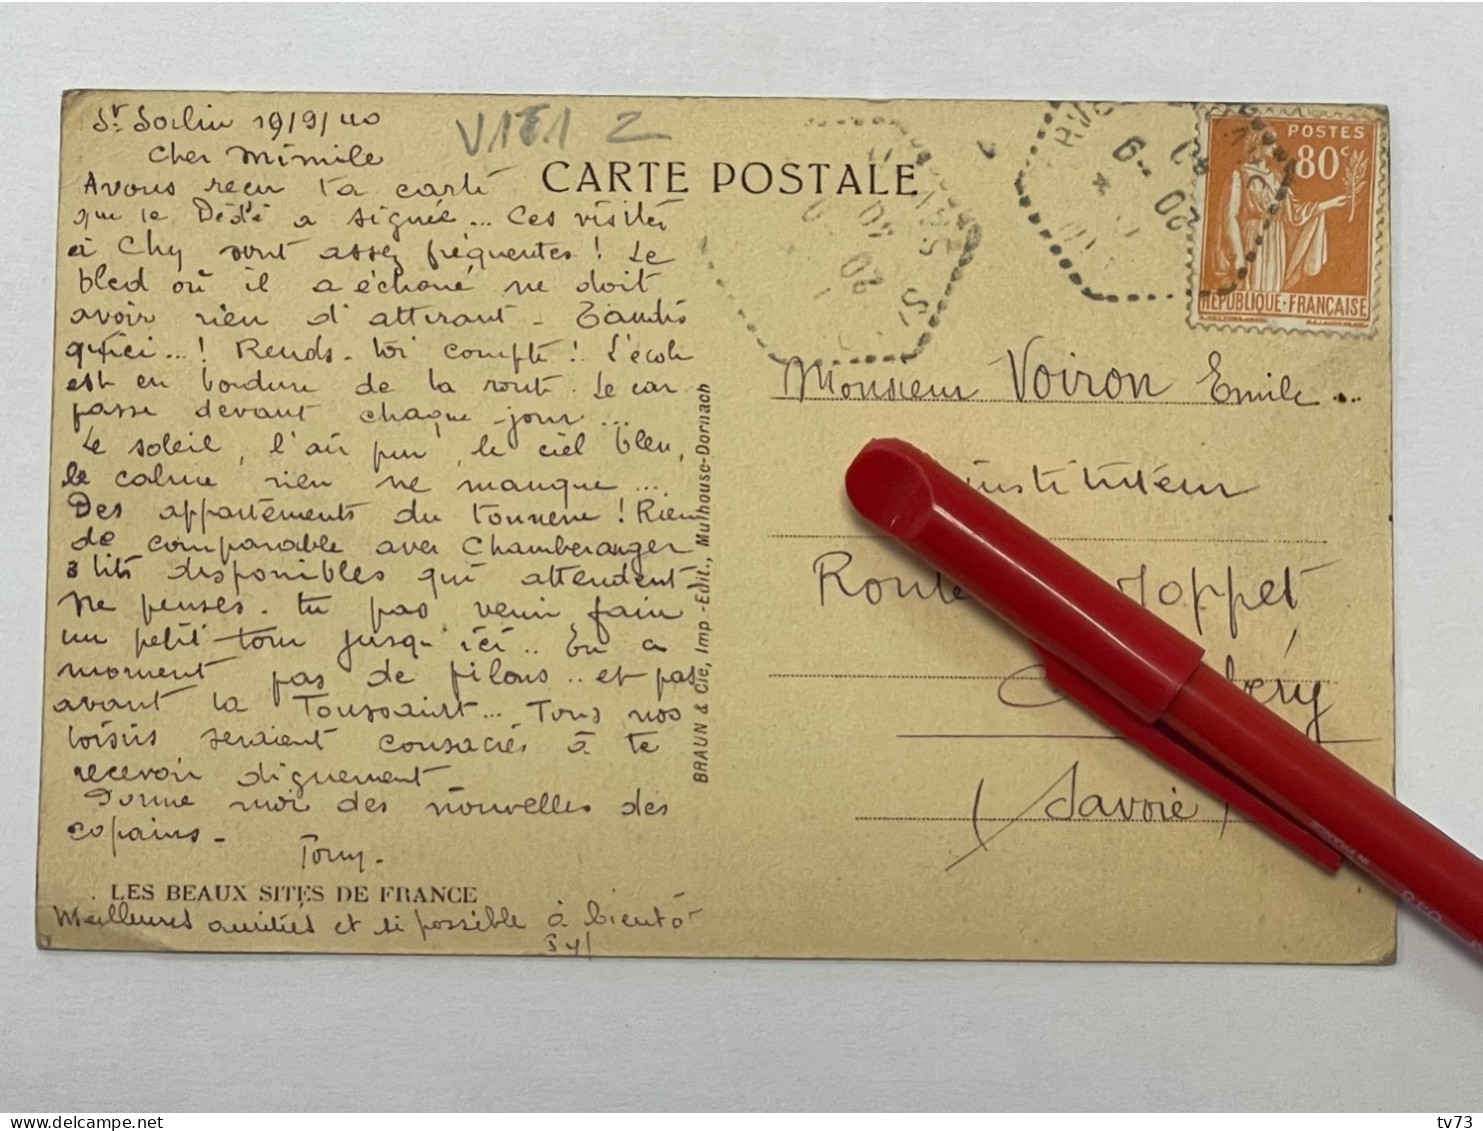 St Sorlin 19/9/40
Cher Mimile
Avons reçu ta carte
que le Dédé a signée... Ces visites
à Chy sont assez fréquentes ! Le
bled où il a échoué ne doit
avoir rien d'attirant - Tandis
qu'ici...! Rends-toi compte ! L'école
est en bordure de la route. Le car
passe devant chaque jour...
Le soleil, l'air pur, le ciel bleu,
le calme rien ne manque...
Des appartements du tonnerre ! Rien
de comparable avec Chamberanger
3 lits disponibles qui attendent
Ne penses-tu pas venir faire
un petit tour jusqu'ici.. En ce
moment pas de filons.. et pas
avant la Toussaint... Tous nos
loisirs seraient consacrés à te
recevoir dignement
Donne moi des nouvelles des
copains-
Tony-
LES BEAUX SITES DE FRANCE
Meilleures amitiés et si possible à bientôt
Syl
V1T1 2
CARTE POSTALE
BRAUN & Cie, Imp.-Edit., Mulhouse-Dornach
POSTES
80c
REPUBLIQUE-FRANÇAISE
20 -9
Monsieur Voiron Emile...
instituteur
Route Joppet
béry
(Savoie)
tv73